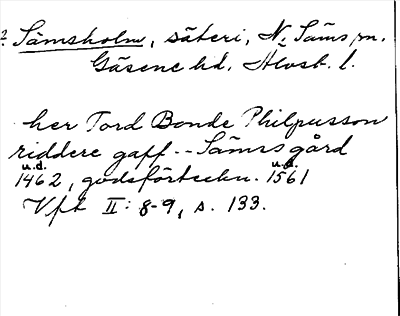 ? Sämsholm, säteri, N. Säms sn.
Gäsene hd, Älvsb. l.
her Tord Bonde Philpusson
riddere gaff -- Sämsgård
u.d.
1462, godsförteckn. 1561
u.d.
Vft II: 8-9, s. 133.